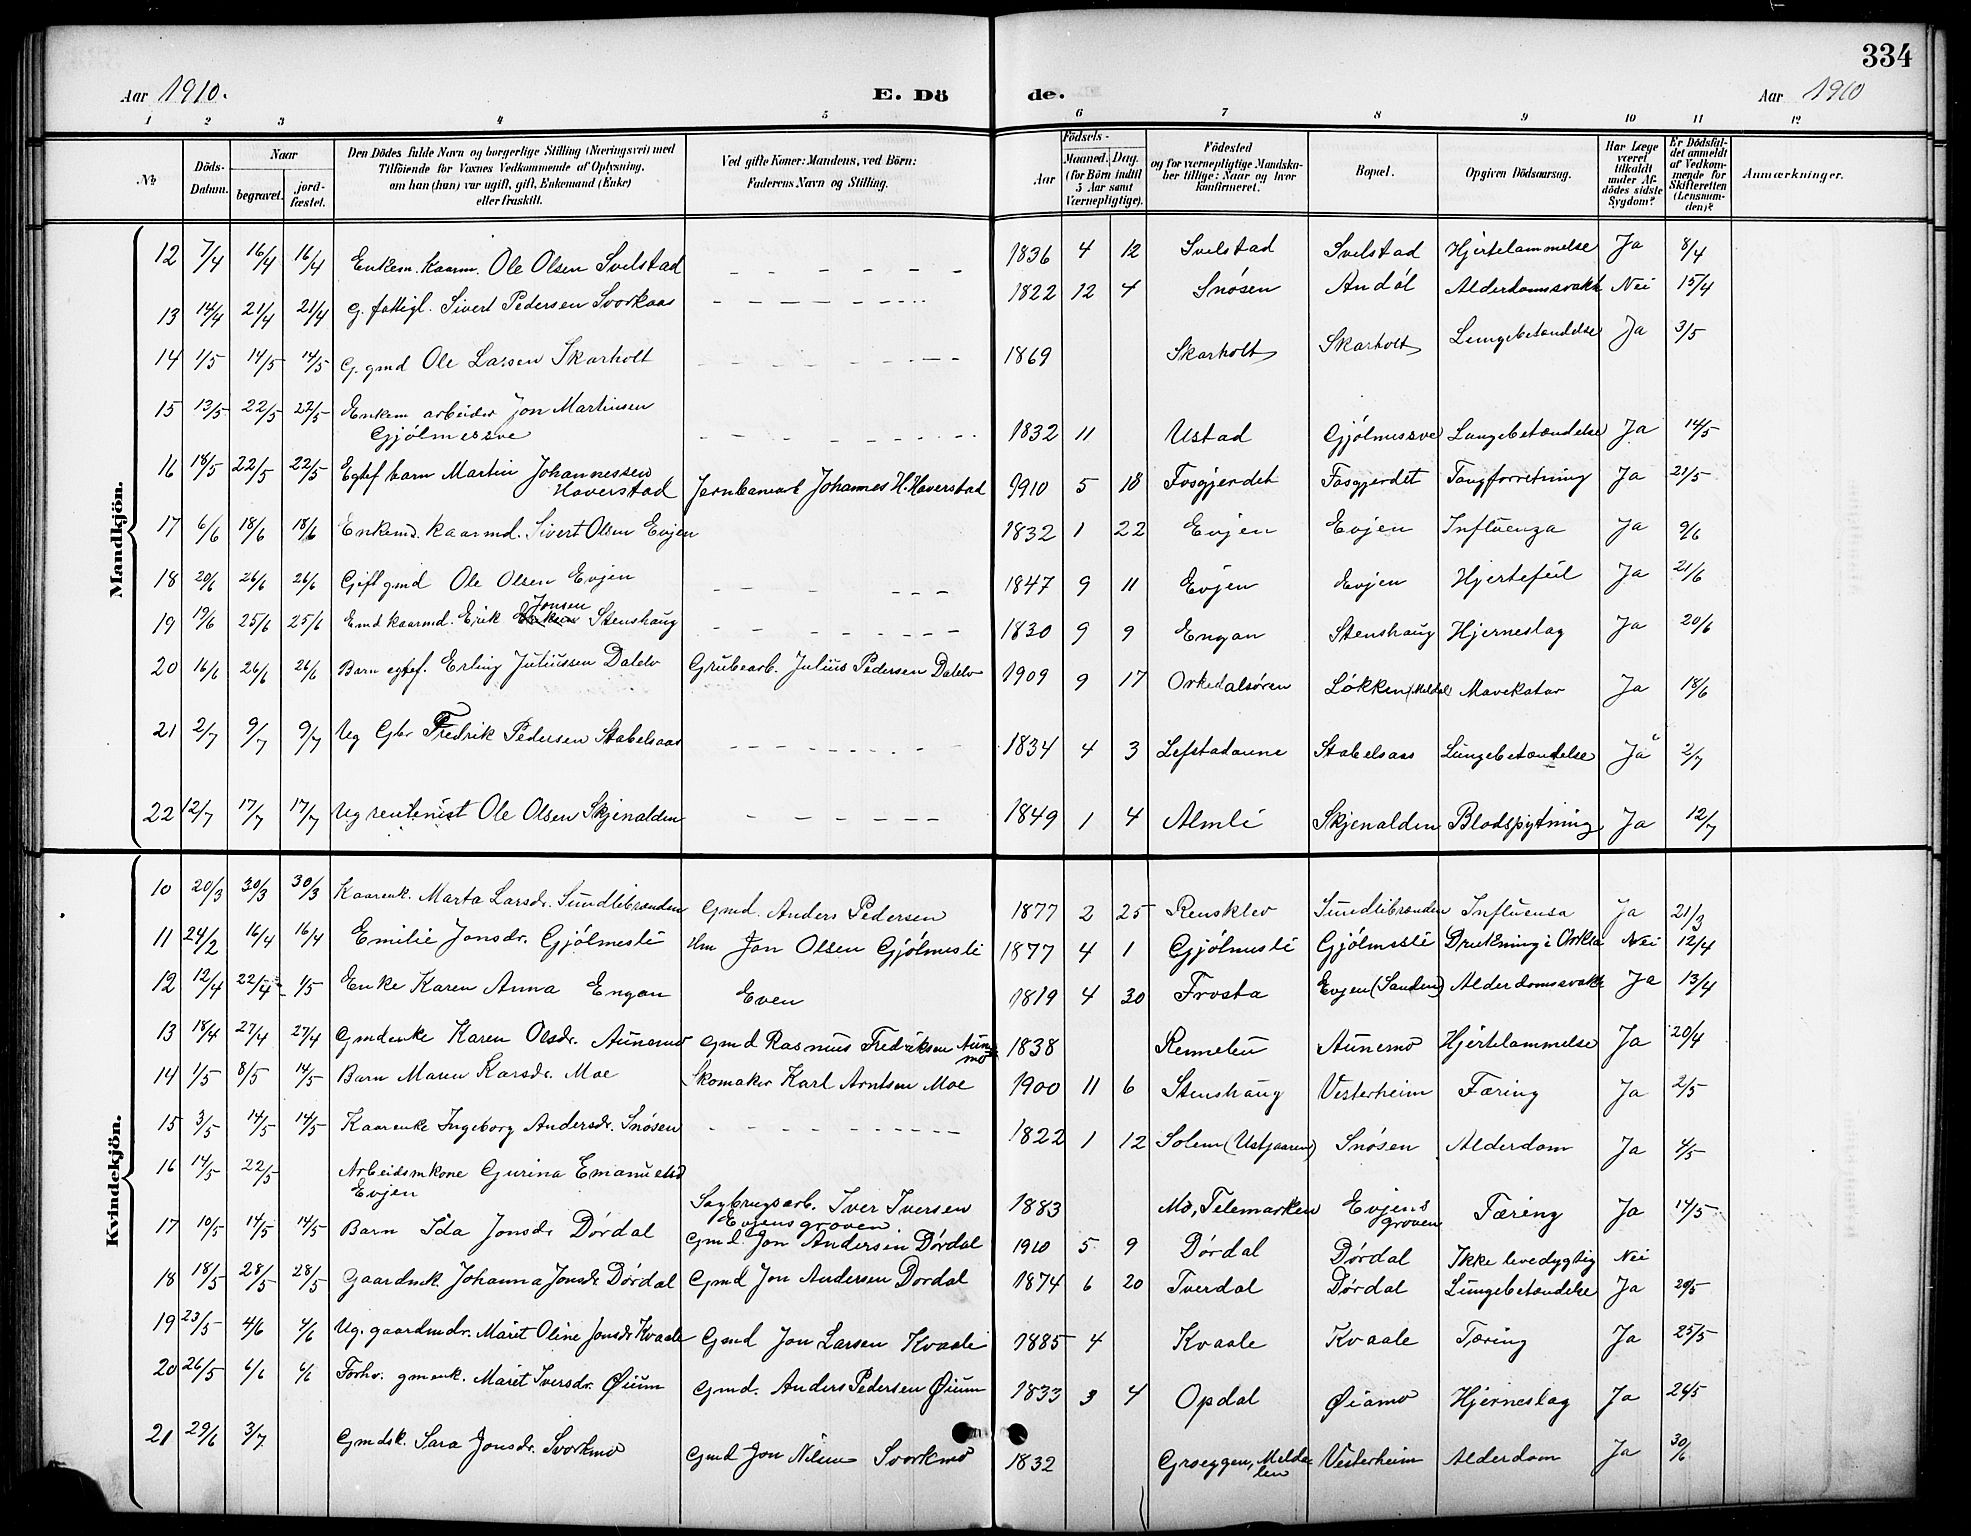 334
Aar 1910. E. Dö de. Aar 1910
1 2 3 4 5 6 7 8 9 10 11 12
№ Döds-Datum. Naar begravet. jord-fæstet. Den Dödes fulde Navn og borgerlige Stilling (Næringsvei) med Tilföiende for Voxnes Vedkommende af Oplysning, om han (hun) var ugift, gift, Enkemand (Enke) eller fraskilt. Ved gifte Koner: Mandens, ved Börn: Faderens Navn og Stilling. Aar Födsels- Maaned. Dag. (for Börn indtil 5 Aar samt Værnepligtige). Födested og for værnepligtige Mandskaber tillige: Naar og hvor konfirmeret. Bopæl. Opgiven Dödsaarsag. Har Læge været tilkaldt under Afdödes sidste Sygdom? Er Dödsfaldet anmeldt af Vedkommende for Skifteretten (Lensmanden)? Anmærkninger.
Mandkjön.
12 7/4 16/4 16/4 Enkem. Kaarm. Ole Olsen Svelstad – – – – – – 1836 4 12 Svelstad Svelstad Hjertelammelse Ja 8/4
13 14/4 21/4 21/4 G. fattigl. Sivert Pedersen Svorkaas – – – – – – 1822 12 4 Snøsen Andøl Alderdomssvakh Nei 15/4
14 1/5 14/5 14/5 G. gmd Ole Larsen Skarholt – – – – – – 1869 Skarholt Skarholt Lungebetændelse Ja 3/5
15 13/5 22/5 22/5 Enkem arbeider Jon Martinsen
Gjølmesøve – – – – – – 1832 11 Ustad Gjølmesøve Lungebetændelse Ja 14/5
16 18/5 22/5 22/5 Egtef barn Martin Johannessen
Haverstad Jernbanearb Johannes H. Haverstad 1910 5 18 Fosgjerdet Fosgjerdet Tangforretning Ja 21/5
17 6/6 18/6 18/6 Enkemd. Kaarmd. Sivert Olsen Evjen 1832 1 22 Evjen Evjen Influenza Ja 9/6
18 20/6 26/6 26/6 Gift gmd Ole Olsen Evjen – – – – – 1847 9 11 Evjen Evjen Hjertefeil Ja 21/6
Jonsen
19 19/6 25/6 25/6 Emd kaarmd. Erik Stenshaug – – – – – – 1830 9 9 Engan Stenshaug Hjerneslag Ja 20/6
20 16/6 26/6 26/6 Barn egtef. Erling Juliussen Dalelv Grubearb. Julius Pedersen Dalelv 1909 9 17 Orkedalsøren Løkken (Meldal) Mavekatar Ja 18/6
21 2/7 9/7 9/7 Ug Gbr Fredrik Pedersen Stabelsaas – – – – – – 1834 4 3 Lefstadaune Stabelsaas Lungebetændelse Ja 2/7
22 12/7 17/7 17/7 Ug rentenist Ole Olsen Skjenalden – – – – – – 1849 1 4 Almli Skjenalden Blodspytning Ja 12/7
Kvindekjön.
10 20/3 30/3 30/3 Kaarenk. Marta Larsdr. Sundlibrænden Gmd. Anders Pedersen 1877 2 25 Rensklev Sundlibrænden Influensa Ja 21/3
11 24/2 16/4 16/4 Emilie Jonsdr. Gjølmesli Hm Jon Olsen Gjølmesli 1877 4 1 Gjølmesli Gjølmesli Drukning i Orkla Nei 12/4
12 12/4 22/4 1/5 Enke Karen Anna Engan Even 1819 4 30 Frosta Evjen (Sanden) Alderdomssvakh Ja 13/4
13 18/4 27/4 27/4 Gmdenke Karen Olsdr. Aunemo Gmd Rasmus Fredriksen Aune
mo 1838 Rennebu Aunemo Hjertelammelse Ja 20/4
14 1/5 8/5 14/5 Barn Maren Karsdr. Moe Skomaker Karl Arntsen Moe 1900 11 6 Stenshaug Vesterheim Tæring Ja 2/5
15 3/5 14/5 14/5 Kaarenke Ingeborg Andersdr. Snøsen – – – – – – 1822 1 12 Solem (Ustjaaren) Snøsen Alderdom Ja 4/5
16 14/5 22/5 Arbeidsmkone Gurina Emanuelsd
Evjen Sagbrugsarb. Iver Iversen
Evjensgroven 1883 Mo, Telemarken Evjens
groven Tæring Ja 14/5
17 10/5 14/5 14/5 Barn Ida Jonsdr Dørdal Gmd. Jon Andersen Dørdal 1910 5 9 Dørdal Dørdal Ikke levedygtig Nei
18 18/5 28/5 28/5 Gaardmk. Johanna Jonsdr Dørdal Gmd Jon Andersen Dørdal 1874 6 20 Tverdal Dørdal Lungebetændelse Ja 20/5
19 23/5 4/6 4/6 Ug. gaardmdr. Marit Oline Jonsdr Kvaale Gmd Jon Larsen Kvaale 1885 4 Kvaale Kvaale Tæring Ja 25/5
20 26/5 6/6 6/6 Forhv. gmenk. Marit Iversdr. Øium Gmd. Anders Pedersen Øium 1833 3 4 Opdal Øiamo Hjerneslag Ja 26/5
21 29/6 3/7 Gmdsk. Sara Jonsdr. Svorkmo Gmd Jon Nilsen Svorkmo 1832 Græggen, Melda-
len Vesterheim Alderdom Ja 30/6